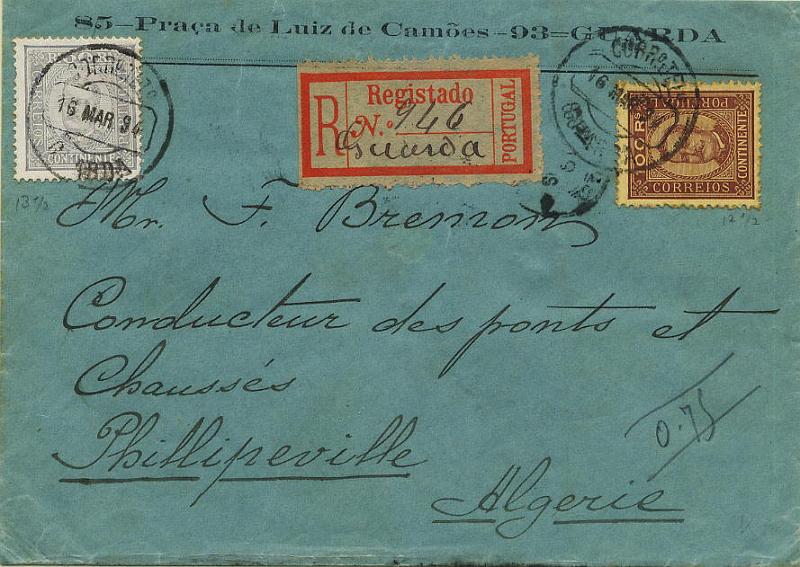 85-Praça de Luiz de Camões-93=GUARDA
16 MAR 94
CONTINENTE
CORREIO
R
Registado
N.º 946
Guarda
PORTUGAL
CORRO TEL
16 MAR 94
PORTUGAL
CONTINENTE
CORREIOS
13 1/2
12 1/2
Mr. F. Bremon
Conducteur des ponts et
Chaussés
Phillipeville
Algerie
0.75